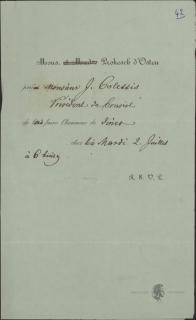 43
Monsr. et Madame Prokesch d'Osten
prie Monsieur J. Colettis
Président du Conseil
de lui faire l'honneur de diner
chez lui Mardi 2. Juillet
à 6 heures
R. S. V. P.